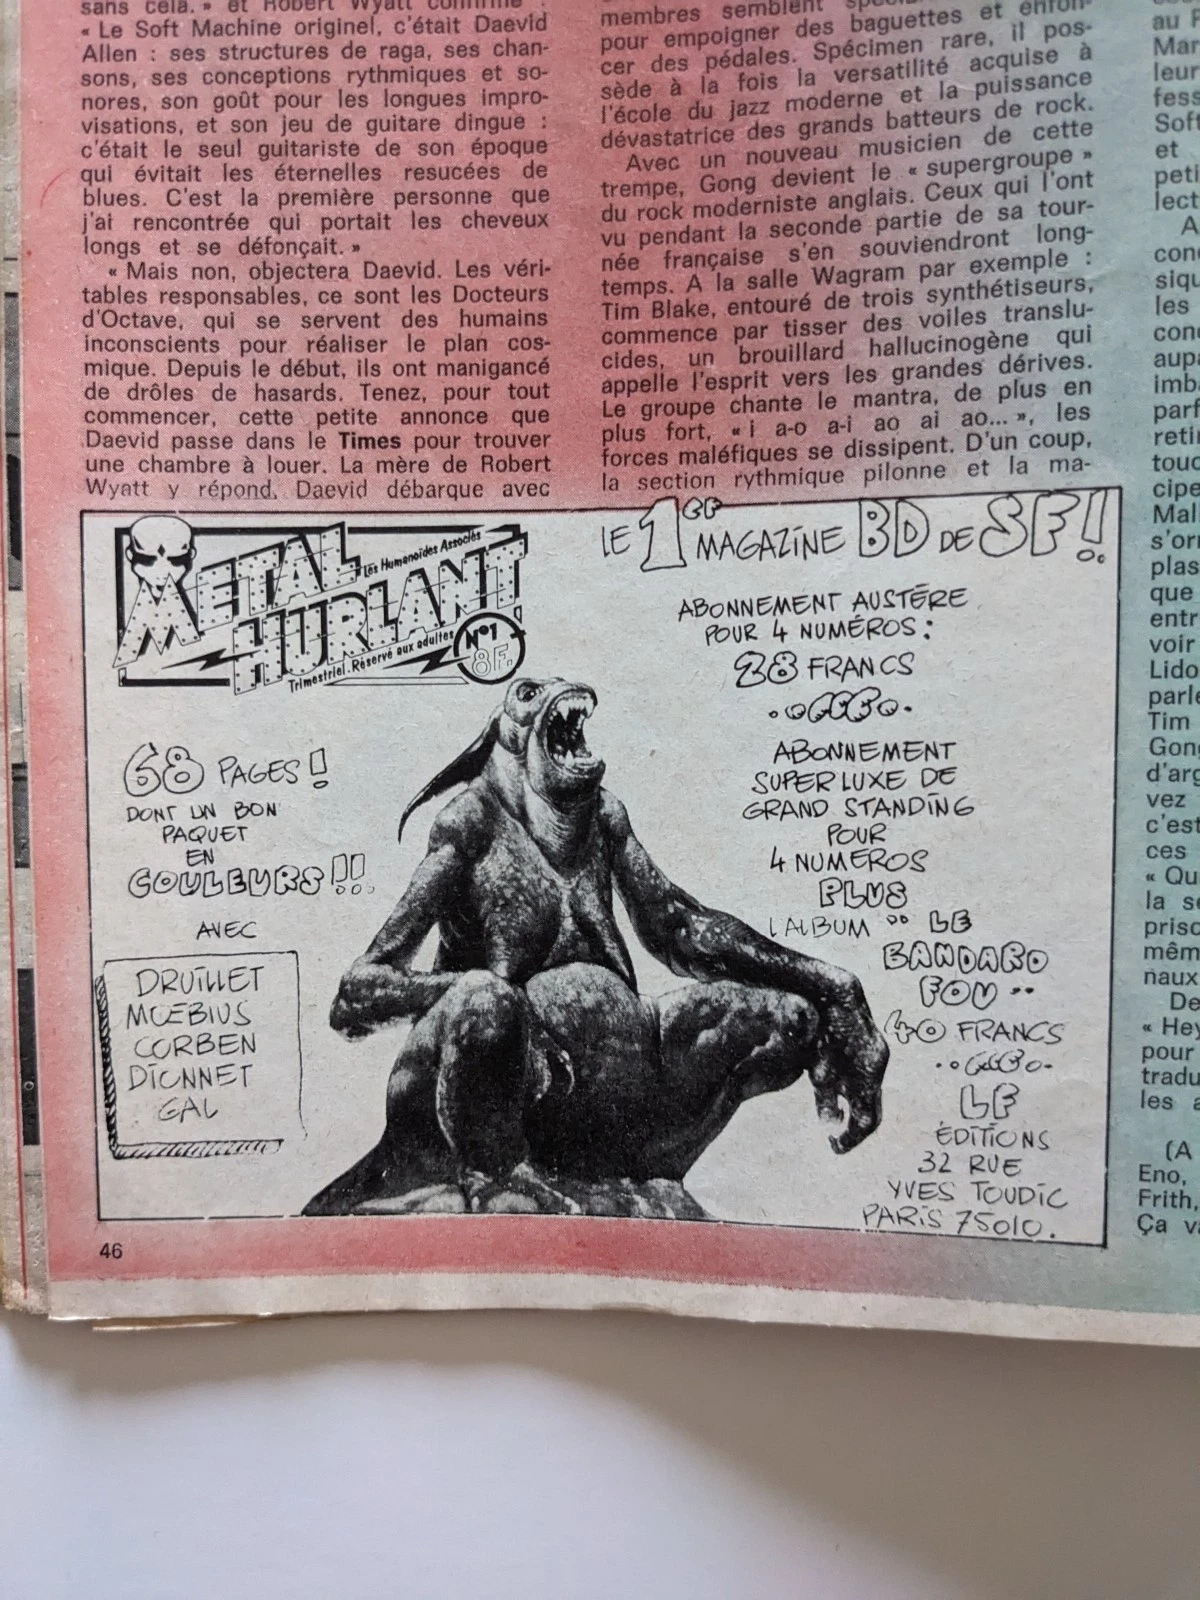 sans cela. » et Robert Wyatt confirme :
« Le Soft Machine originel, c'était Daevid
Allen : ses structures de raga, ses chan-
sons, ses conceptions rythmiques et so-
nores, son goût pour les longues impro-
visations, et son jeu de guitare dingue :
c'était le seul guitariste de son époque
qui évitait les éternelles resucées de
blues. C'est la première personne que
j'ai rencontrée qui portait les cheveux
longs et se défonçait. »
« Mais non, objectera Daevid. Les véri-
tables responsables, ce sont les Docteurs
d'Octave, qui se servent des humains
inconscients pour réaliser le plan cos-
mique. Depuis le début, ils ont manigancé
de drôles de hasards. Tenez, pour tout
commencer, cette petite annonce que
Daevid passe dans le Times pour trouver
une chambre à louer. La mère de Robert
Wyatt y répond. Daevid débarque avec
membres semblent
pour empoigner des baguettes et enfon-
cer des pédales. Spécimen rare, il pos-
sède à la fois la versatilité acquise à
l'école du jazz moderne et la puissance
dévastatrice des grands batteurs de rock.
Avec un nouveau musicien de cette
trempe, Gong devient le « supergroupe »
du rock moderniste anglais. Ceux qui l'ont
vu pendant la seconde partie de sa tour-
née française s'en souviendront long-
temps. A la salle Wagram par exemple :
Tim Blake, entouré de trois synthétiseurs,
commence par tisser des voiles translu-
cides, un brouillard hallucinogène qui
appelle l'esprit vers les grandes dérives.
Le groupe chante le mantra, de plus en
plus fort, « i a-o a-i ao ai ao... », les
forces maléfiques se dissipent. D'un coup,
la section rythmique pilonne et la ma-
au
Mar
leur
fess
Soft
et
peti
lect
A
conc
siqu
les
conc
aupa
imba
parf
retir
touc
cipe
Mal
s'orn
plas
que
entr
voir
Lido
parle
Tim
Gong
d'arg
vez
c'est
ces
« Qu
la se
priso
mêm
naux
De
« Hey
pour
tradu
les a
(A
Eno,
Frith,
Ça v
METAL
HURLANT
Les Humanoïdes Associés
Trimestriel. Réservé aux adultes
N°1
8F.
LE 1ER MAGAZINE BD DE SF!
68 PAGES!
DONT UN BON
PAQUET
EN
COULEURS!!
AVEC
DRUILLET
MŒBIUS
CORBEN
DIONNET
GAL
ABONNEMENT AUSTÉRE
POUR 4 NUMÉROS:
28 FRANCS
ABONNEMENT
SUPER LUXE DE
GRAND STANDING
POUR
4 NUMEROS
PLUS
L'ALBUM " LE
BANDARD
FOU "
40 FRANCS
LF
ÉDITIONS
32 RUE
YVES TOUDIC
PARIS 75010.
46